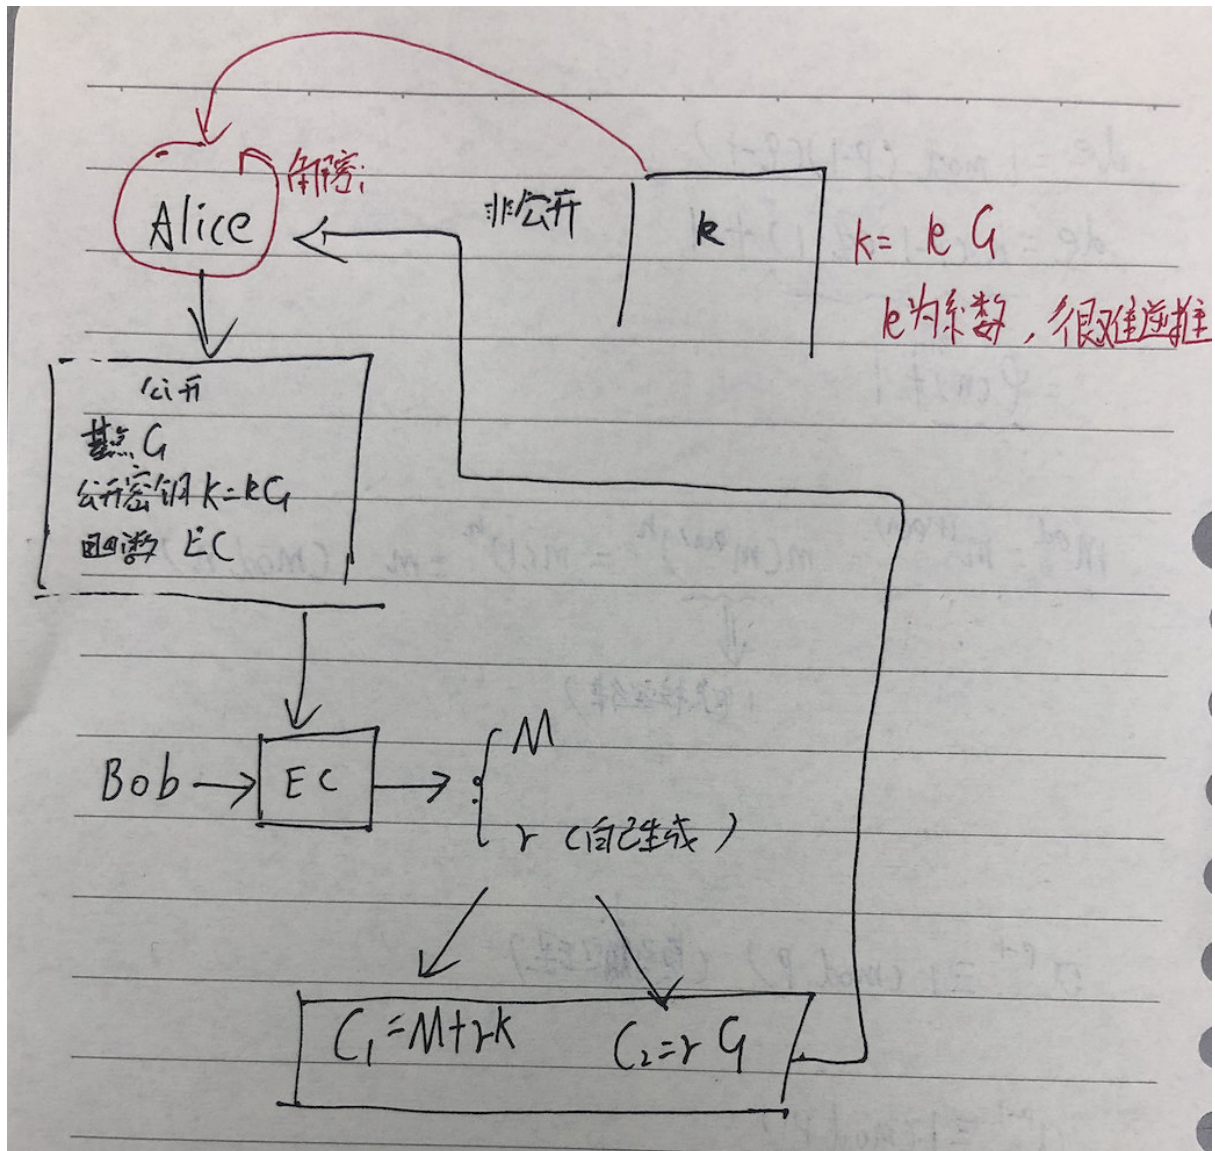 解密:
Alice
非公开
k
k = k G
k为系数，很难逆推
公开
基点 G
公开密钥 k=kG
函数 EC
Bob
EC
M
r (自己生成)
C₁=M+rk
C₂=r G